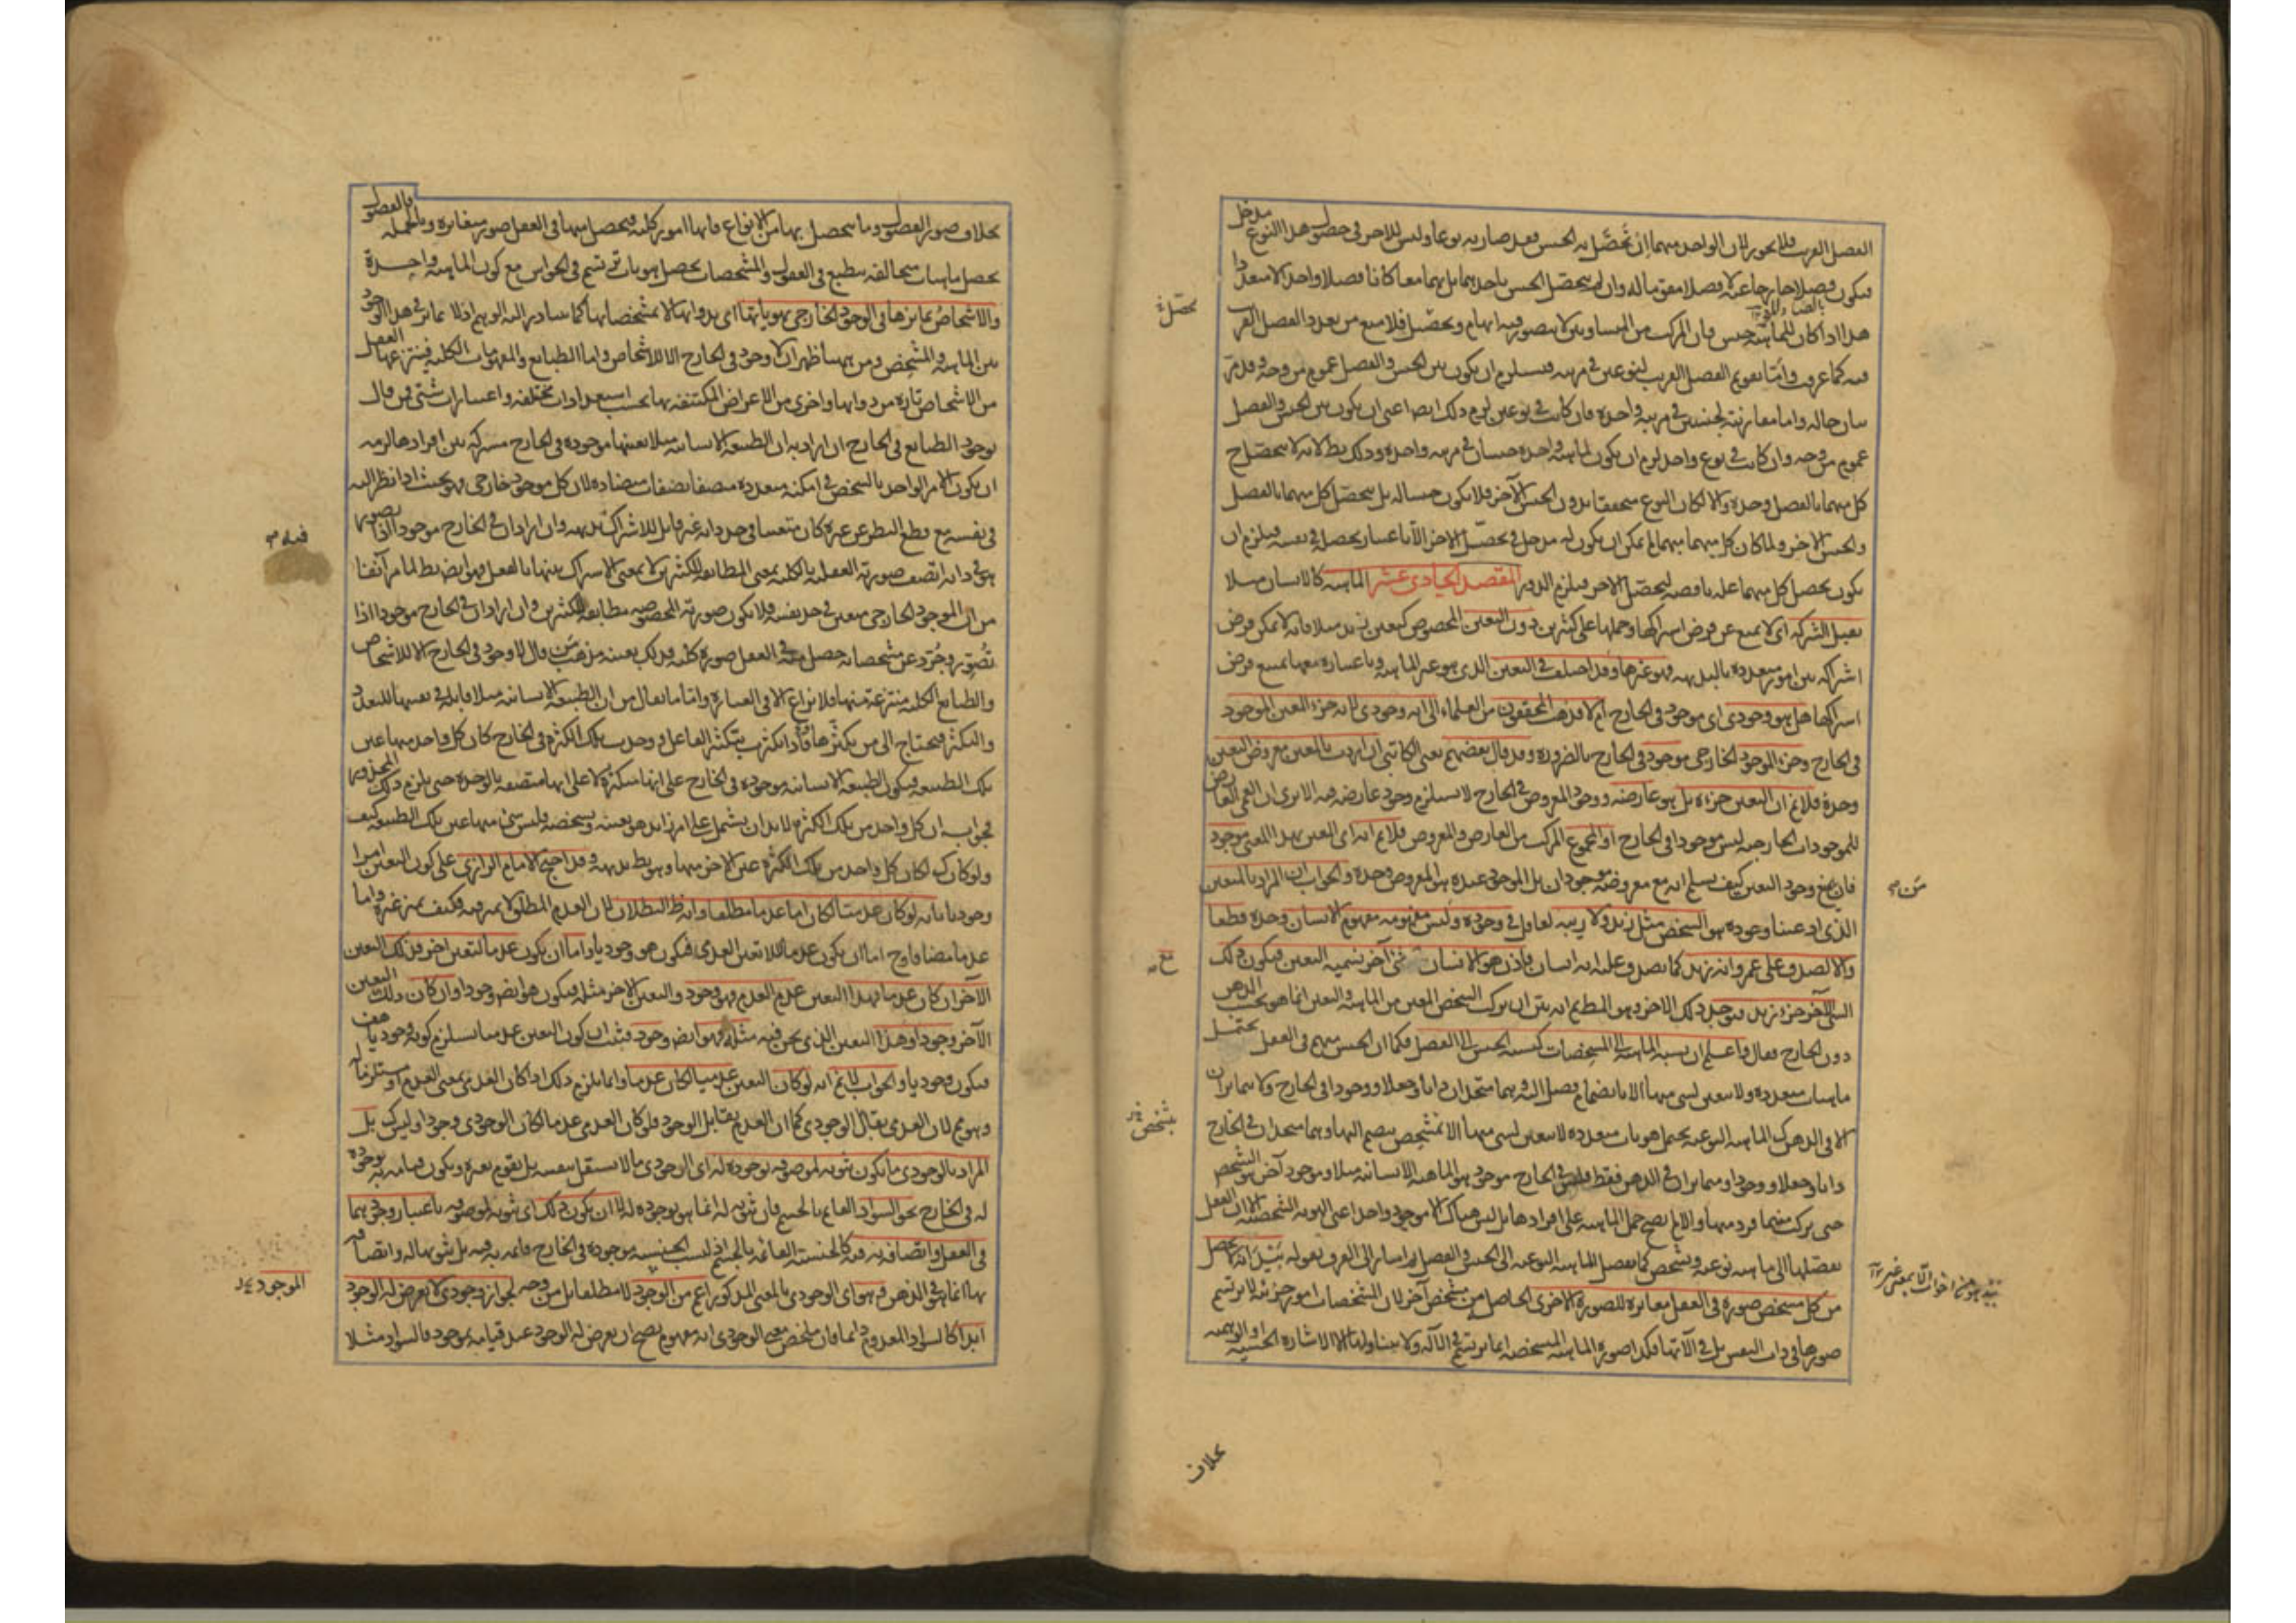 الفصل القريب فلا يجوز لان الواحد منهما ان تَحَصَّل به الجنس فقد صار به نوعا وليس للاخر فى حصول هذا النوع مدخل
فيكون فصلا خارجا عنه لا فصلا مقوما له وان لم يتحصل الجنس باحدهما بل بهما معا كانا فصلا واحدا لا متعددا
هذا اذا كان للماهية جنس فان المركب من المتساويين لا يتصور فيه ابهام وتحصيل فلا يمنع من تعدد الفصل القريب
فيه كما عرفت واما تقويم الفصل القريب لنوعين فى مرتبة فيستلزم ان يكون بين الجنس والفصل عموم من وجه وقد مر
بيان حاله واما مقارنته لجنسين فى مرتبة واحدة فان كانت فى نوعين لزم ذلك ايضا اعنى ان يكون بين الجنس والفصل
عموم من وجه وان كانت فى نوع واحد لزم ان يكون لماهية واحدة جنسان فى مرتبة واحدة وذلك بط لانه لا يتحصل ح
كل منهما بالفصل وحده والا لكان النوع متحققا بدون الجنس الآخر فلا يكون جنسا له بل يتحصل كل منهما بالفصل
والجنس الاخر ولما كان كل منهما مبهما لم يمكن ان يكون له مدخل فى تحصل الاخر الا باعتبار تحصله فى نفسه فيلزم ان
يكون تحصل كل منهما علة ناقصة لتحصل الاخر فيلزم الدور المقصد الحادى عشر الماهية كالانسان مثلا
تقبل الشركة اى لا يمنع عن فرض اشتراكها وحملها على كثيرين دون التعين المخصوص كتعين زيد مثلا فانه لا يمكن فرض
اشتراكه بين امور متعددة بالبديهة فهو غيرها وقد اختلف فى التعين الذى هو غير الماهية وباعتباره معها يمتنع فرض
اشتراكها هل هو وجودى اى موجود فى الخارج ام لا فذهب المحققون من العلماء الى انه وجودى لانه جزء المعين الموجود
فى الخارج وجزء الموجود الخارجى موجود فى الخارج بالضرورة وقد قال بعضهم يعنى الكاتبى ان اردت بالمعين معروض التعين
وحده فلا نم ان التعين جزءه بل هو عارضه ووجود المعروض فى الخارج لا يستلزم وجود عارضه فيه الا يرى ان العمى العارض
للموجودات الخارجية ليس موجودا فى الخارج او المجموع المركب من العارض والمعروض فلا نم انه اى المعين بهذا المعنى موجود
فان منع وجود التعين كيف يسلم انه مع معروضه موجودان بل الموجود عنده هو المعروض وحده والجواب ان المراد بالمعين
الذى ادعينا وجوده هو الشخص مثل زيد ولا ريبة لعاقل فى وجوده وليس مفهومه مفهوم الانسان وحده قطعا
والا لصدق على عمرو انه زيد كما يصدق عليه انه انسان فاذن هو الانسان شئ آخر نسميه التعين فيكون ذلك
الشئ الآخر جزء زيد فيوجد ذلك الاخر وهو المط ثم انه بين ان تركب الشخص المعين من الماهية والتعين انما هو بحسب الذهن
دون الخارج فقال واعلم ان نسبة الماهية الى المشخصات كنسبة الجنس الى الفصل فكما ان الجنس مبهم فى العقل يحتمل
ماهيات متعددة ولا يتعين لشئ منها الا بانضمام فصل اليه وهما متحدان ذاتا وجعلا ووجودا فى الخارج ولا يتمايزان
الا فى الذهن كذا الماهية النوعية يحتمل هويات متعددة لا يتعين لشئ منها الا بتشخص ينضم اليها وهما متحدان فى الخارج
ذاتا وجعلا ووجودا ومتمايزان فى الذهن فقط فليس فى الخارج موجود هو الماهية الانسانية مثلا وموجود آخر هو التشخص
حتى يتركب منهما فرد منها والا لم يصح حمل الماهية على افرادها بل ليس هناك الا موجود واحد اعنى الهوية الشخصية الا ان العقل
يفصلها الى ماهية نوعية وتشخص كما يفصل الماهية النوعية الى الجنس والفصل ثم اشار الى الفرق بقوله بَيْدَ انه يحصل
من كل مشخص صورة فى العقل مغايرة للصورة الاخرى الحاصل من مشخص آخر لان المشخصات امور جزئية لا يرتسم
صورها فى ذات النفس بل فى الآتها فكذا صورة الماهية المشخصة انما يرتسم فى الآلة ولا يتناولها الا الاشارة الحسية او الوهمية
بخلاف
بخلاف صور الفصول وما يتحصل بها من الانواع فانها امور كلية فيحصل منها فى العقل صور متغايرة وبالجملة فالفصول
تحصل ماهيات متخالفة ينطبع فى العقول والمشخصات تحصل هويات ترتسم فى الحواس مع كون الماهية واحدة
والاشخاص تمايزها فى الوجود الخارجى بهوياتها اى بذواتها لا بمشخصاتها كما يتبادر اليه الوهم اذ لا تمايز فى هذا الوجود
بين الماهية والمشخص ومن ههنا ظهر ان لا وجود فى الخارج الا للاشخاص واما الطبايع والمفهومات الكلية فينتزعها العقل
من الاشخاص تارة من ذواتها واخرى من الاعراض المكتنفة بها بحسب استعدادات مختلفة واعتبارات شتى فمن قال
بوجود الطبايع فى الخارج ان اراد به ان الطبيعة الانسانية مثلا بعينها موجودة فى الخارج مشتركة بين افرادها لزمه
ان يكون الامر الواحد بالشخص فى امكنة متعددة متصفا بصفات متضادة لان كل موجود خارجى فهو بحيث اذا نظر اليه
فى نفسه مع قطع النظر عن غيره كان متعينا فى حد ذاته غير قابل للاشتراك فيه بديهة وان اراد ان فى الخارج موجودا اذا تصور
هو فى ذاته اتصف صورته العقلية بالكلية بمعنى المطابقة لكثيرين لا بمعنى الاشتراك بينهما بالفعل فهو ايض بط لما مر آنفا
من ان الموجود الخارجى متعين فى حد نفسه فلا يكون صورته المخصوصة مطابقة لكثيرين وان اراد ان فى الخارج موجودا اذا
تُصُوِّر وجُرّد عن مشخصاته حصل منه فى العقل صورة كلية فذلك بعينه مذهب من قال لا وجود فى الخارج الا للاشخاص
والطبايع الكلية منتزعة منها فلا نزاع الا فى العبارة واما ما يقال من ان الطبيعة الانسانية مثلا قابلة فى نفسها للتعدد
والتكثر فيحتاج الى من يكثرها فاذا تكثرت بتكثير الفاعل ووجدت تلك الكثرة فى الخارج كان كل واحد منها عين
تلك الطبيعة فيكون الطبيعة الانسانية موجودة فى الخارج على انها متكثرة لا على انها متصفة بالوحدة حتى يلزم ذلك المحذور
فجوابه ان كل واحد من تلك الكثرة لا بد ان يشتمل على امر زايد هو تعينه وتشخصه فليس شئ منها عين تلك الطبيعة كيف
ولو كان ك لكان كل واحد من تلك الكثرة عين الاخر منها وهو بط بديهة وقد احتج الامام الرازى على كون التعين امرا
وجوديا بانه لو كان عدميا لكان اما عدما مطلقا وانه ظ البطلان لان العدم المطلق لا تميز فيه فكيف يميز غيره واما
عدما مضافا وح اما ان يكون عدما للاتعين العدمى فيكون هو وجوديا واما ان يكون عدما لتعين اخر فذلك التعين
الآخر ان كان عدما فهذا التعين عدم العدم فهو وجود والتعين الاخر مثله فيكون هو ايض وجودا وان كان ذلك التعين
الآخر وجودا وهذا التعين الذى نحن فيه مثله فهو ايض وجود فثبت ان كون التعين عدميا يستلزم كونه وجوديا هف
فيكون وجوديا والجواب لا نم انه لو كان التعين عدميا لكان عدما وانما يلزم ذلك اذا كان العدمى بمعنى العدم او مستلزما له
وهو مم لان العدمى يقابل الوجودى كما ان العدم يقابل الوجود فلو كان العدمى عدما لكان الوجودى وجودا وليس ك بل
المراد بالوجودى ما يكون ثبوته لموصوفه بوجوده له اى الوجودى ما لا يستقل بنفسه بل يقوم بغيره ويكون قيامه به بوجوده
له فى الخارج نحو السواد القايم بالجسم فان ثبوته له انما هو بوجوده له لا ان يكون ذلك اى ثبوته لموصوفه باعتبار وجودهما
فى العقل واتصافه به فيه كالجنسية القائمة بالجسم اذ ليست الجنسية موجودة فى الخارج قائمة به فيه بل ثبوتها له واتصافه
بها انما هو فى الذهن فهو اى الوجودى بالمعنى المذكور اعم من الموجود لا مطلقا بل من وجه لجواز وجودى لا يعرض له الوجود
ابدا كالسواد المعدوم دائما فان ملخص معنى الوجودى انه مفهوم يصح ان يعرض له الوجود عند قيامه بموجود فالسواد مثلا